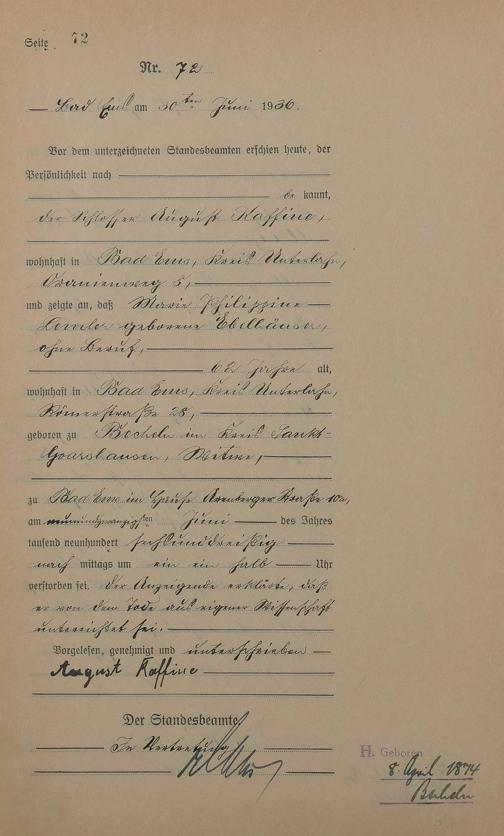 Seite 72
Nr. 72
Bad Ems am 30ten Juni 1936.
Vor dem unterzeichneten Standesbeamten erschien heute, der
Persönlichkeit nach
be kannt,
der Schlosser August Kaffine,
wohnhaft in Bad Ems, Kreis Unterlahn,
Oranienweg 5,
und zeigte an, daß Marie Philippine
geborene Ebelhäuser,
ohne Beruf,
62 Jahre alt,
wohnhaft in Bad Ems, Kreis Unterlahn,
Römerstraße 28,
geboren zu Becheln im Kreis Sankt-
Goarshausen, Witwe,
zu Bad Ems im Hause Arenberger Straße 10a,
am neunundzwanzigsten Juni des Jahres
tausend neunhundert sechsunddreißig
nach mittags um ein ein halb Uhr
verstorben sei. Der Anzeigende erklärte, daß
er von dem Tode aus eigener Wissenschaft
unterrichtet sei.
Vorgelesen, genehmigt und unterschrieben
August Kaffine
Der Standesbeamte
In Vertretung
H. Geboren
8. April 1874
Becheln